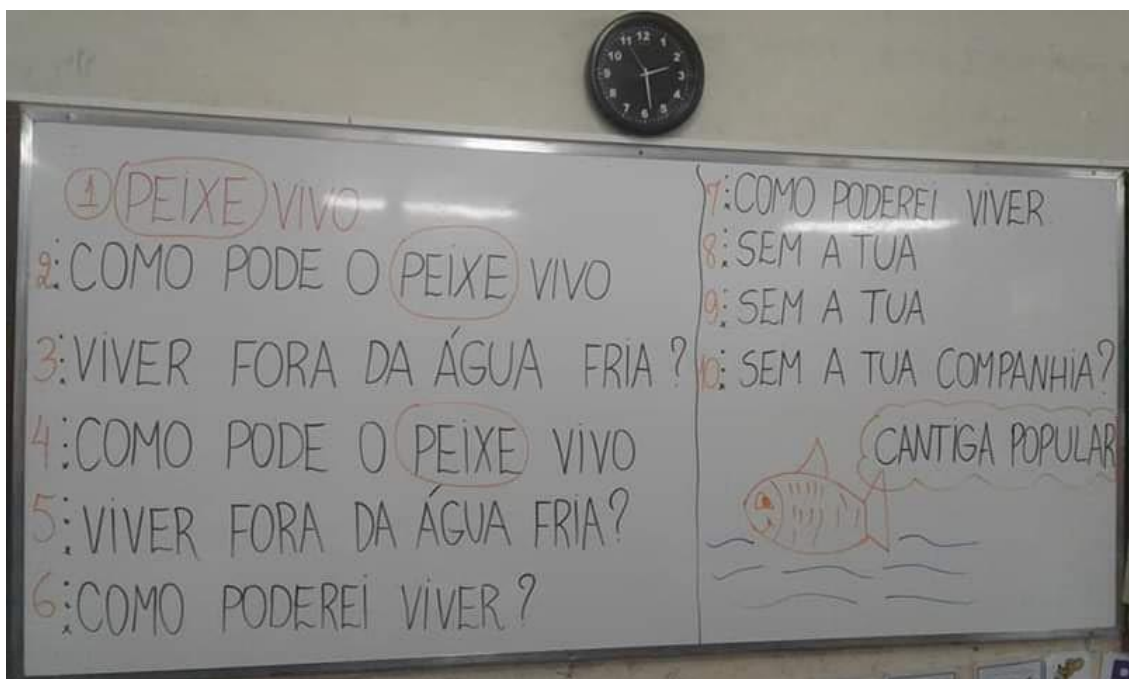 11 12 1
10 2
9 3
8 4
7 6 5
1 PEIXE VIVO
2: COMO PODE O PEIXE VIVO
3: VIVER FORA DA ÁGUA FRIA?
4: COMO PODE O PEIXE VIVO
5: VIVER FORA DA ÁGUA FRIA?
6: COMO PODEREI VIVER?
7: COMO PODEREI VIVER
8: SEM A TUA
9: SEM A TUA
10: SEM A TUA COMPANHIA?
CANTIGA POPULAR